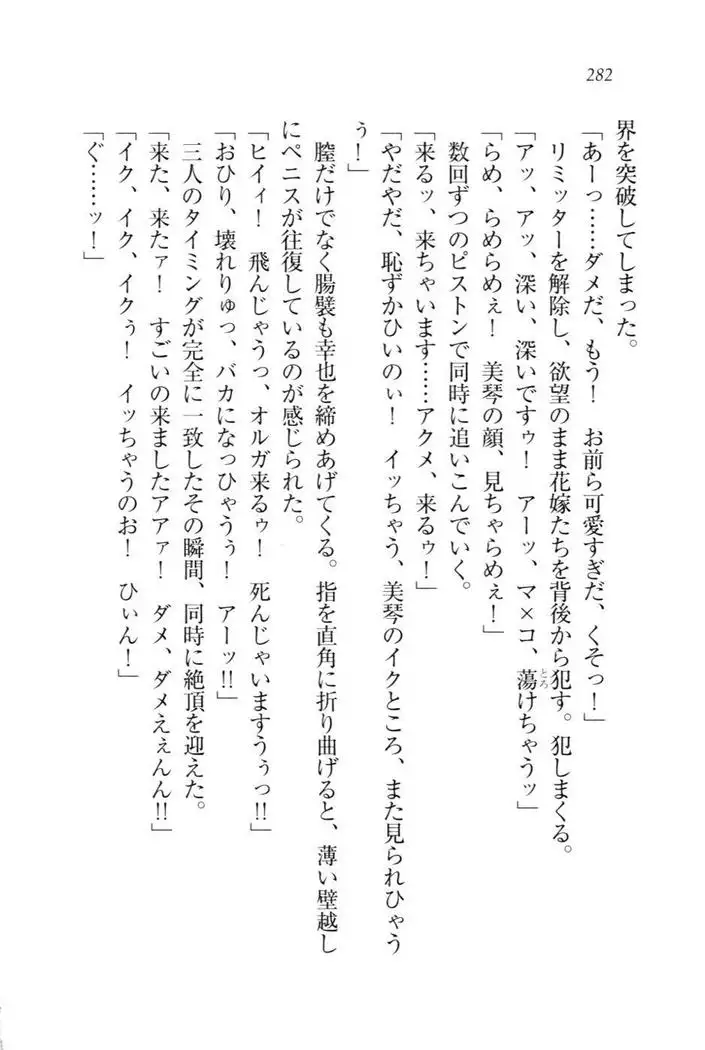 282
界を突破してしまった。
「あーっ……ダメだ、もう！　お前ら可愛すぎだ、くそっ！」
リミッターを解除し、欲望のまま花嫁たちを背後から犯す。犯しまくる。
「アッ、アッ、深い、深いですゥ！　アーッ、マ×コ、蕩けちゃうッ」
「らめ、らめらめぇ！　美琴の顔、見ちゃらめぇ！」
数回ずつのピストンで同時に追いこんでいく。
「来るッ、来ちゃいます……アクメ、来るゥ！」
「やだやだ、恥ずかひいのぃ！　イッちゃう、美琴のイクところ、また見られひゃう
ぅ！」
膣だけでなく腸襞も幸也を締めあげてくる。指を直角に折り曲げると、薄い壁越し
にペニスが往復しているのが感じられた。
「ヒイィ！　飛んじゃうっ、オルガ来るゥ！　死んじゃいますうぅっ!!」
「おひり、壊れりゅっ、バカになっひゃうぅ！　アーッ!!」
三人のタイミングが完全に一致したその瞬間、同時に絶頂を迎えた。
「来た、来たァ！　すごいの来ましたアアァ！　ダメ、ダメえぇんん!!」
「イク、イク、イクぅ！　イッちゃうのお！　ひぃん！」
「ぐ……ッ！」